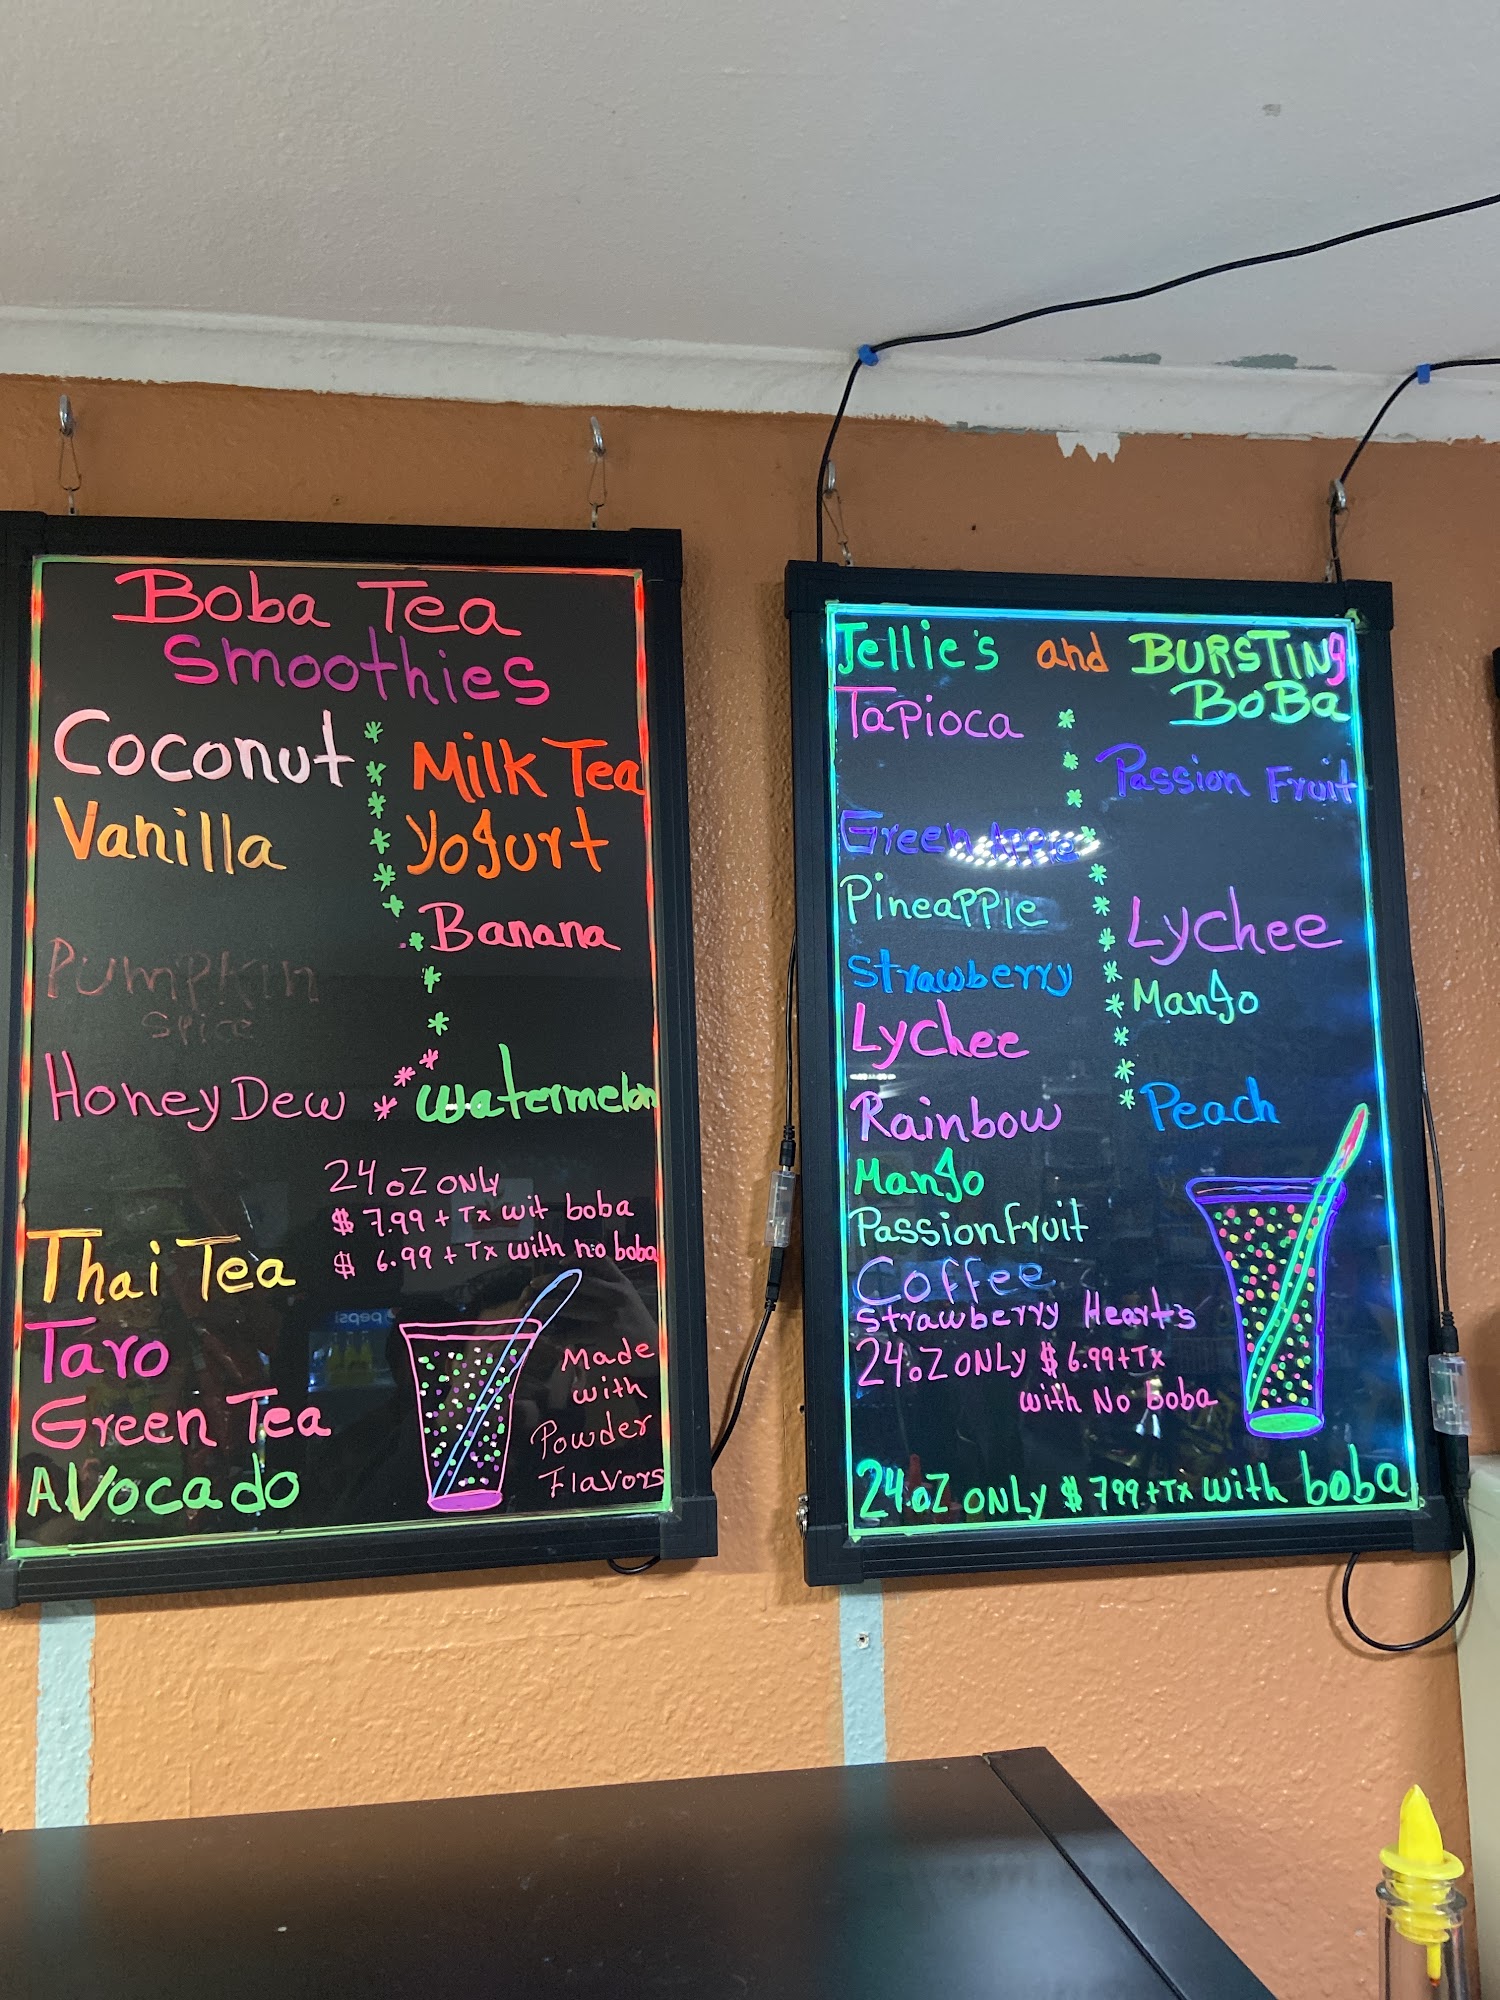 Boba Tea
Smoothies
Coconut
Vanilla
Pumpkin
Spice
HoneyDew
Milk Tea
Yogurt
Banana
Watermelon
24 oz ONLY
$ 7.99 + Tx wit boba
$ 6.99 + Tx with no boba
Thai Tea
Taro
Green Tea
AVocado
Made
with
Powder
Flavors
pepsi
Jellie's and BURSTINg
BoBa
Tapioca
Green Apple
Pineapple
Strawberry
Lychee
Rainbow
Mango
Passion fruit
Coffee
Strawberry Heart's
Passion Fruit
Lychee
Mango
Peach
24 oz ONLY $ 6.99 + Tx
with No boba
24 oz ONLY $ 799 + Tx with boba